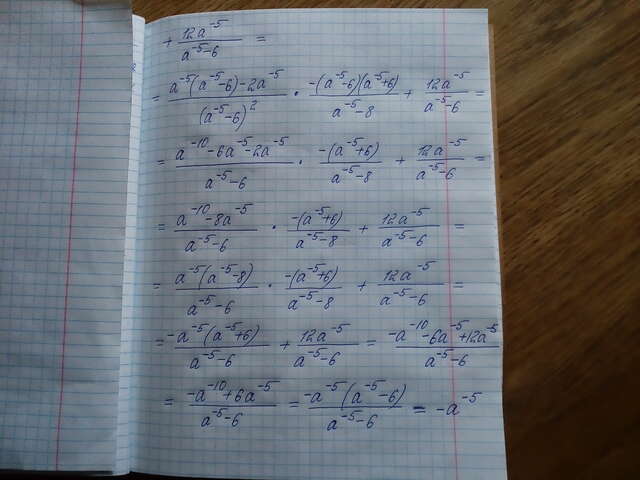 + 12a⁻⁵/(a⁻⁵-6) =
= (a⁻⁵(a⁻⁵-6)-2a⁻⁵)/(a⁻⁵-6)² · (-(a⁻⁵-6)(a⁻⁵+6))/(a⁻⁵-8) + 12a⁻⁵/(a⁻⁵-6) =
= (a⁻¹⁰-6a⁻⁵-2a⁻⁵)/(a⁻⁵-6) · (-(a⁻⁵+6))/(a⁻⁵-8) + 12a⁻⁵/(a⁻⁵-6) =
= (a⁻¹⁰-8a⁻⁵)/(a⁻⁵-6) · (-(a⁻⁵+6))/(a⁻⁵-8) + 12a⁻⁵/(a⁻⁵-6) =
= (a⁻⁵(a⁻⁵-8))/(a⁻⁵-6) · (-(a⁻⁵+6))/(a⁻⁵-8) + 12a⁻⁵/(a⁻⁵-6) =
= (-a⁻⁵(a⁻⁵+6))/(a⁻⁵-6) + 12a⁻⁵/(a⁻⁵-6) = (-a⁻¹⁰-6a⁻⁵+12a⁻⁵)/(a⁻⁵-6)
= (-a⁻¹⁰+6a⁻⁵)/(a⁻⁵-6) = (-a⁻⁵(a⁻⁵-6))/(a⁻⁵-6) = -a⁻⁵